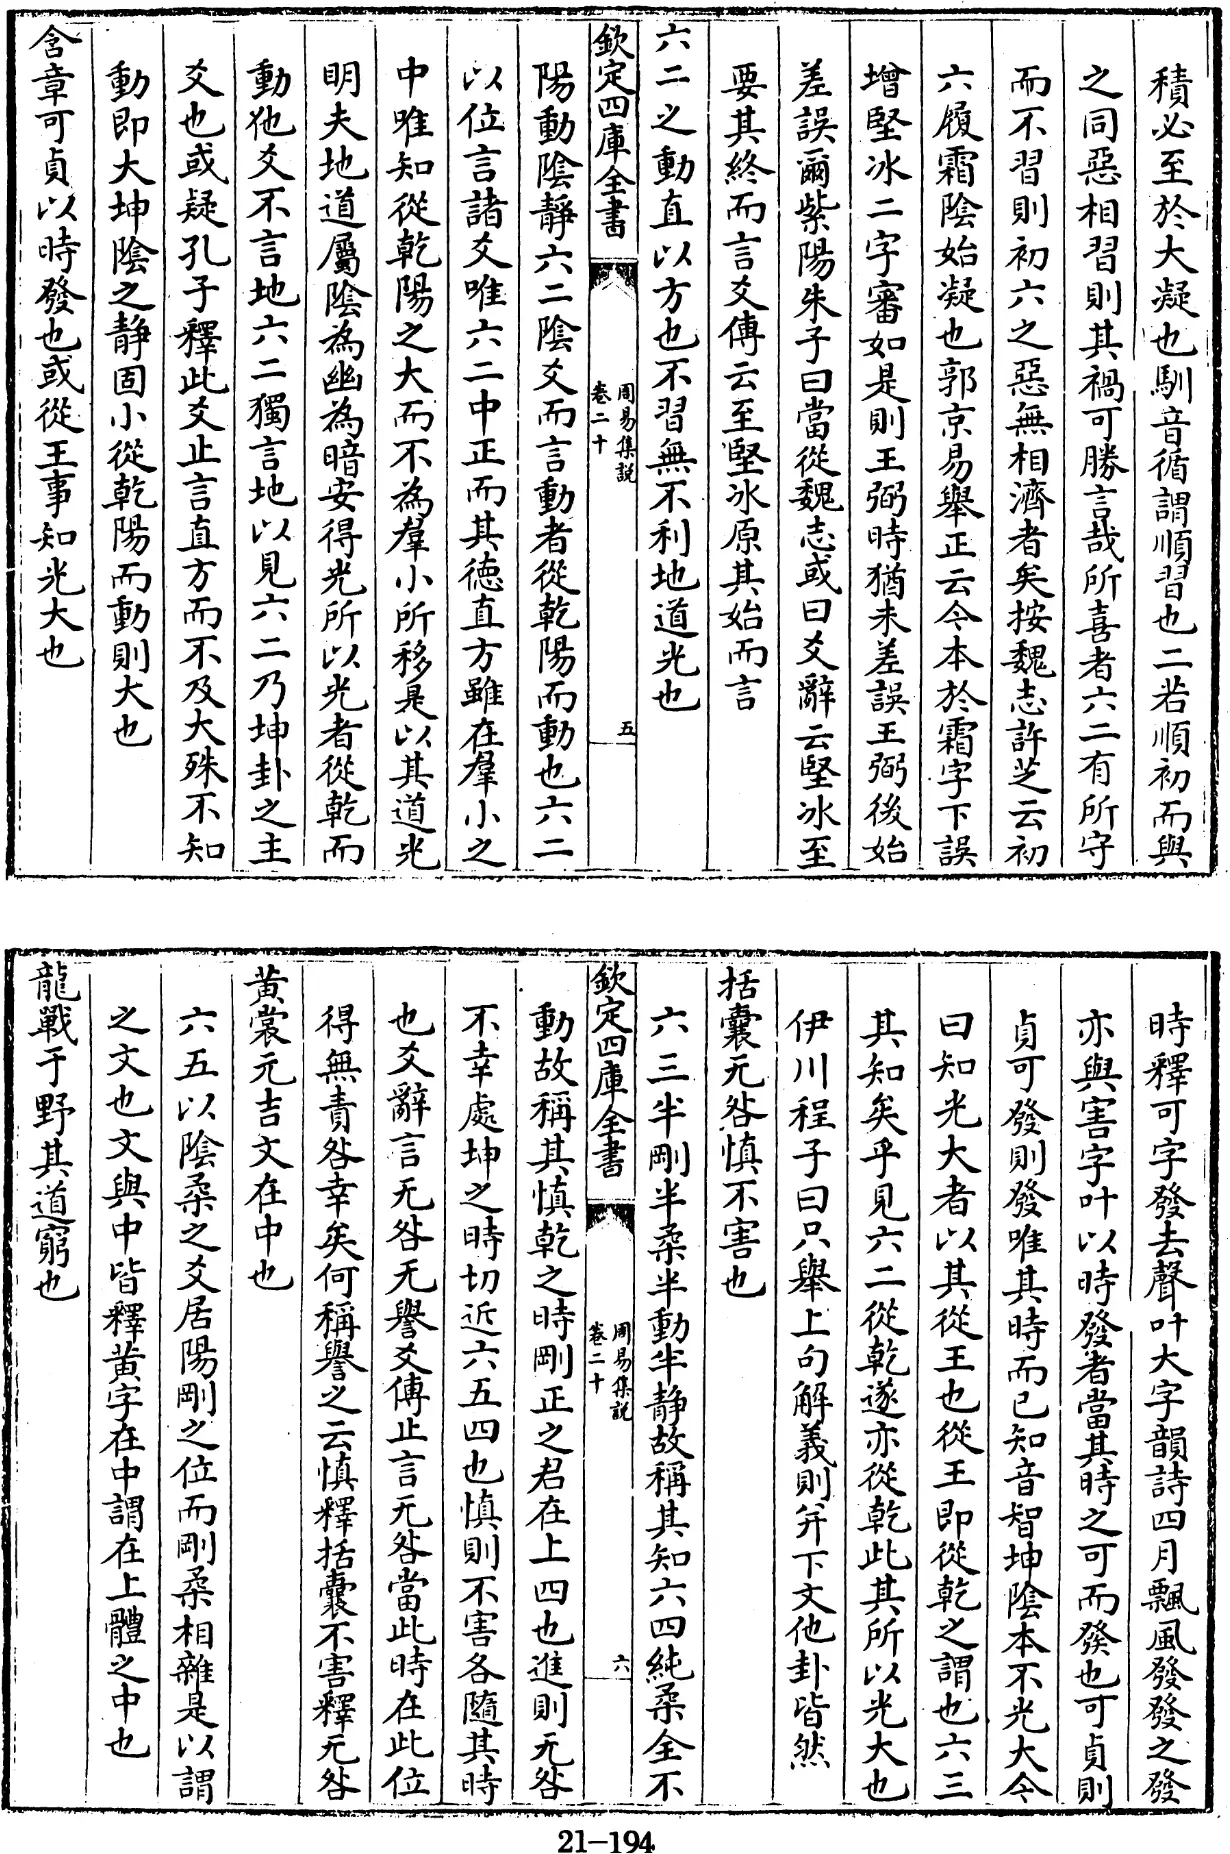 積必至於大凝也馴音循謂順習也二若順初而與
之同惡相習則其禍可勝言哉所喜者六二有所守
而不習則初六之惡無相濟者矣按魏志許芝云初
六履霜陰始凝也郭京易舉正云今本於霜字下誤
增堅冰二字審如是則王弼時猶未差誤王弼後始
差誤爾紫陽朱子曰當從魏志或曰爻辭云堅冰至
要其終而言爻傳云至堅冰原其始而言
六二之動直以方也不習無不利地道光也
欽定四庫全書
周易集說
卷二十
五
陽動陰靜六二陰爻而言動者從乾陽而動也六二
以位言諸爻唯六二中正而其德直方雖在羣小之
中唯知從乾陽之大而不為羣小所移是以其道光
明夫地道屬陰為幽為暗安得光所以光者從乾而
動他爻不言地六二獨言地以見六二乃坤卦之主
爻也或疑孔子釋此爻止言直方而不及大殊不知
動即大坤陰之靜固小從乾陽而動則大也
含章可貞以時發也或從王事知光大也
時釋可字發去聲叶大字韻詩四月飄風發發之發
亦與害字叶以時發者當其時之可而發也可貞則
貞可發則發唯其時而已知音智坤陰本不光大今
曰知光大者以其從王也從王即從乾之謂也六三
其知矣乎見六二從乾遂亦從乾此其所以光大也
伊川程子曰只舉上句解義則并下文他卦皆然
括囊无咎慎不害也
六三半剛半柔半動半靜故稱其知六四純柔全不
欽定四庫全書
周易集說
卷二十
六
動故稱其慎乾之時剛正之君在上四也進則无咎
不幸處坤之時切近六五四也慎則不害各隨其時
也爻辭言无咎无譽爻傳止言无咎當此時在此位
得無責咎幸矣何稱譽之云慎釋括囊不害釋无咎
黃裳元吉文在中也
六五以陰柔之爻居陽剛之位而剛柔相雜是以謂
之文也文與中皆釋黃字在中謂在上體之中也
龍戰于野其道窮也
21-194